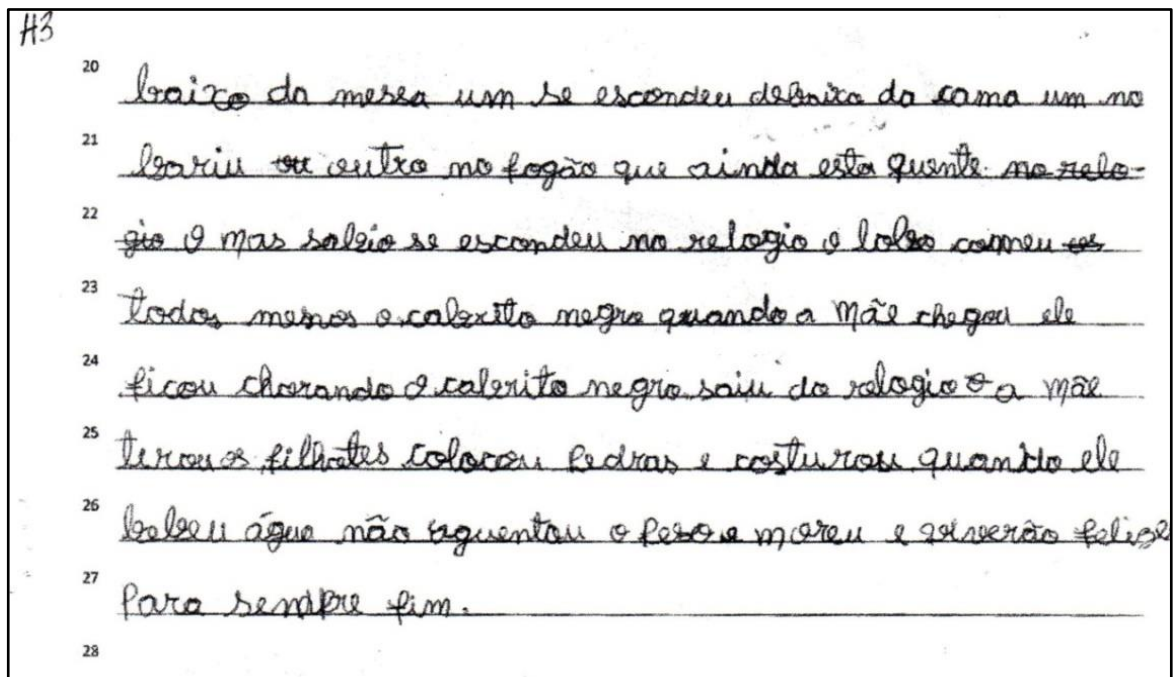 H3
20 baixo da messa um se escondeu debaixo da cama um no
21 bariu ou outro no fogão que ainda esta quente no relo-
22 gio O mas sabio se escondeu no relogio o lobo comeu os
23 todos menos o cabrito negro quando a mãe chegou ele
24 ficou chorando O cabrito negro saiu do relogio e a mãe
25 tirou os filhotes colocou pedras e costurou quando ele
26 bebeu água não aguentou o peso e moreu e viverão felize
27 para sempre fim.
28